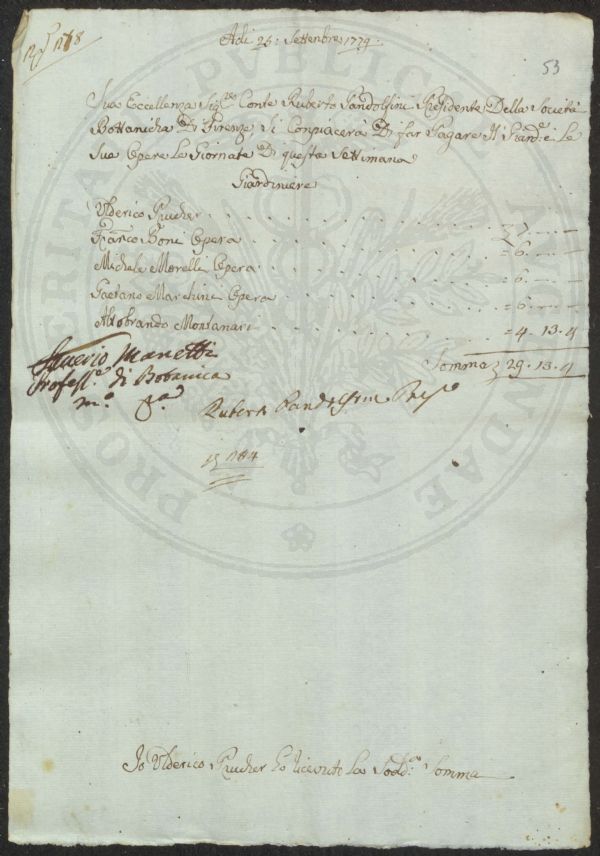 53
Adi 25: Settembre 1779.
Sua Eccellenza Sig.re Conte Ruberto Pandolfini Presidente Della Società
Bottanicha Di Firenze Si Conpiacerà Di far Pagare Il Giard.e e Le
Sue Opere Le Giornate Di questa Settimana
Giardiniere
Ulderico Prucher . . . 7. — —
Franco Boni Opera . . . = 6. — —
Michele Morelli Opera . . . = 6. — —
Gaetano Marchini Opera . . . = 6. — —
Aldobrando Montanari . . . = 4. 13. 4
Somma 29. 13. 4
Saverio Manetti
Profess.e di Botanica
m.o p.a
Ruberto Pandolfini Pres.e
Io Ulderico Prucher ho ricevuto La Sodd.a Somma
PROSPERITATI PUBLICAE AUGENDAE